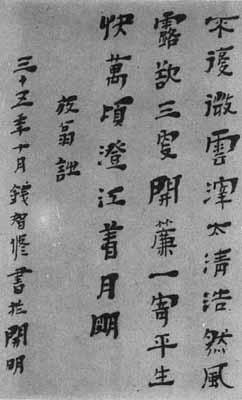 不復微雲滓太清浩然風
露欲三更開簾一寄平生
快萬頃澄江着月明
放翁詩
三十五年十月錢智修書於開明